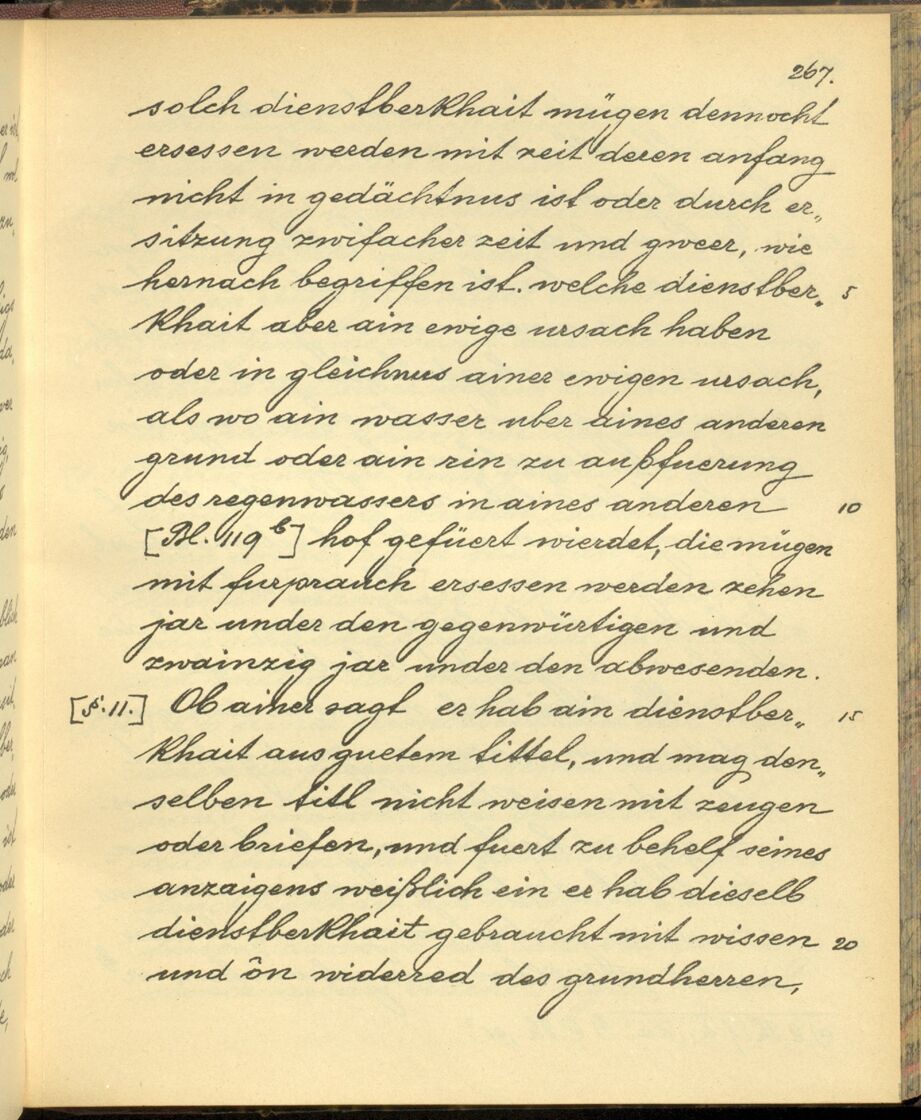 267.
solch dienstberkhait mügen dennocht
ersessen werden mit zeit deren anfang
nicht in gedächtnus ist oder durch er„
sitzung zwifacher zeit und gweer, wie
hernach begriffen ist. welche dienstber„ 5
khait aber ain ewige ursach haben
oder in gleichnus ainer ewigen ursach,
als wo ain wasser uber aines anderen
grund oder ain rin zu außfuerung
des regenwassers in aines anderen 10
[Bl. 119 b] hof gefüert wierdet, die mügen
mit furprauch ersessen werden zehen
jar under den gegenwürtigen und
zwainzig jar under den abwesenden.
[§. 11.] Ob ainer sagt er hab ain dienstber„ 15
khait aus guetem tittel, und mag den„
selben titl nicht weisen mit zeugen
oder briefen, und fuert zu behelf seines
anzaigens weißlich ein er hab dieselb
dienstberkhait gebraucht mit wissen 20
und ôn widerred des grundherren,